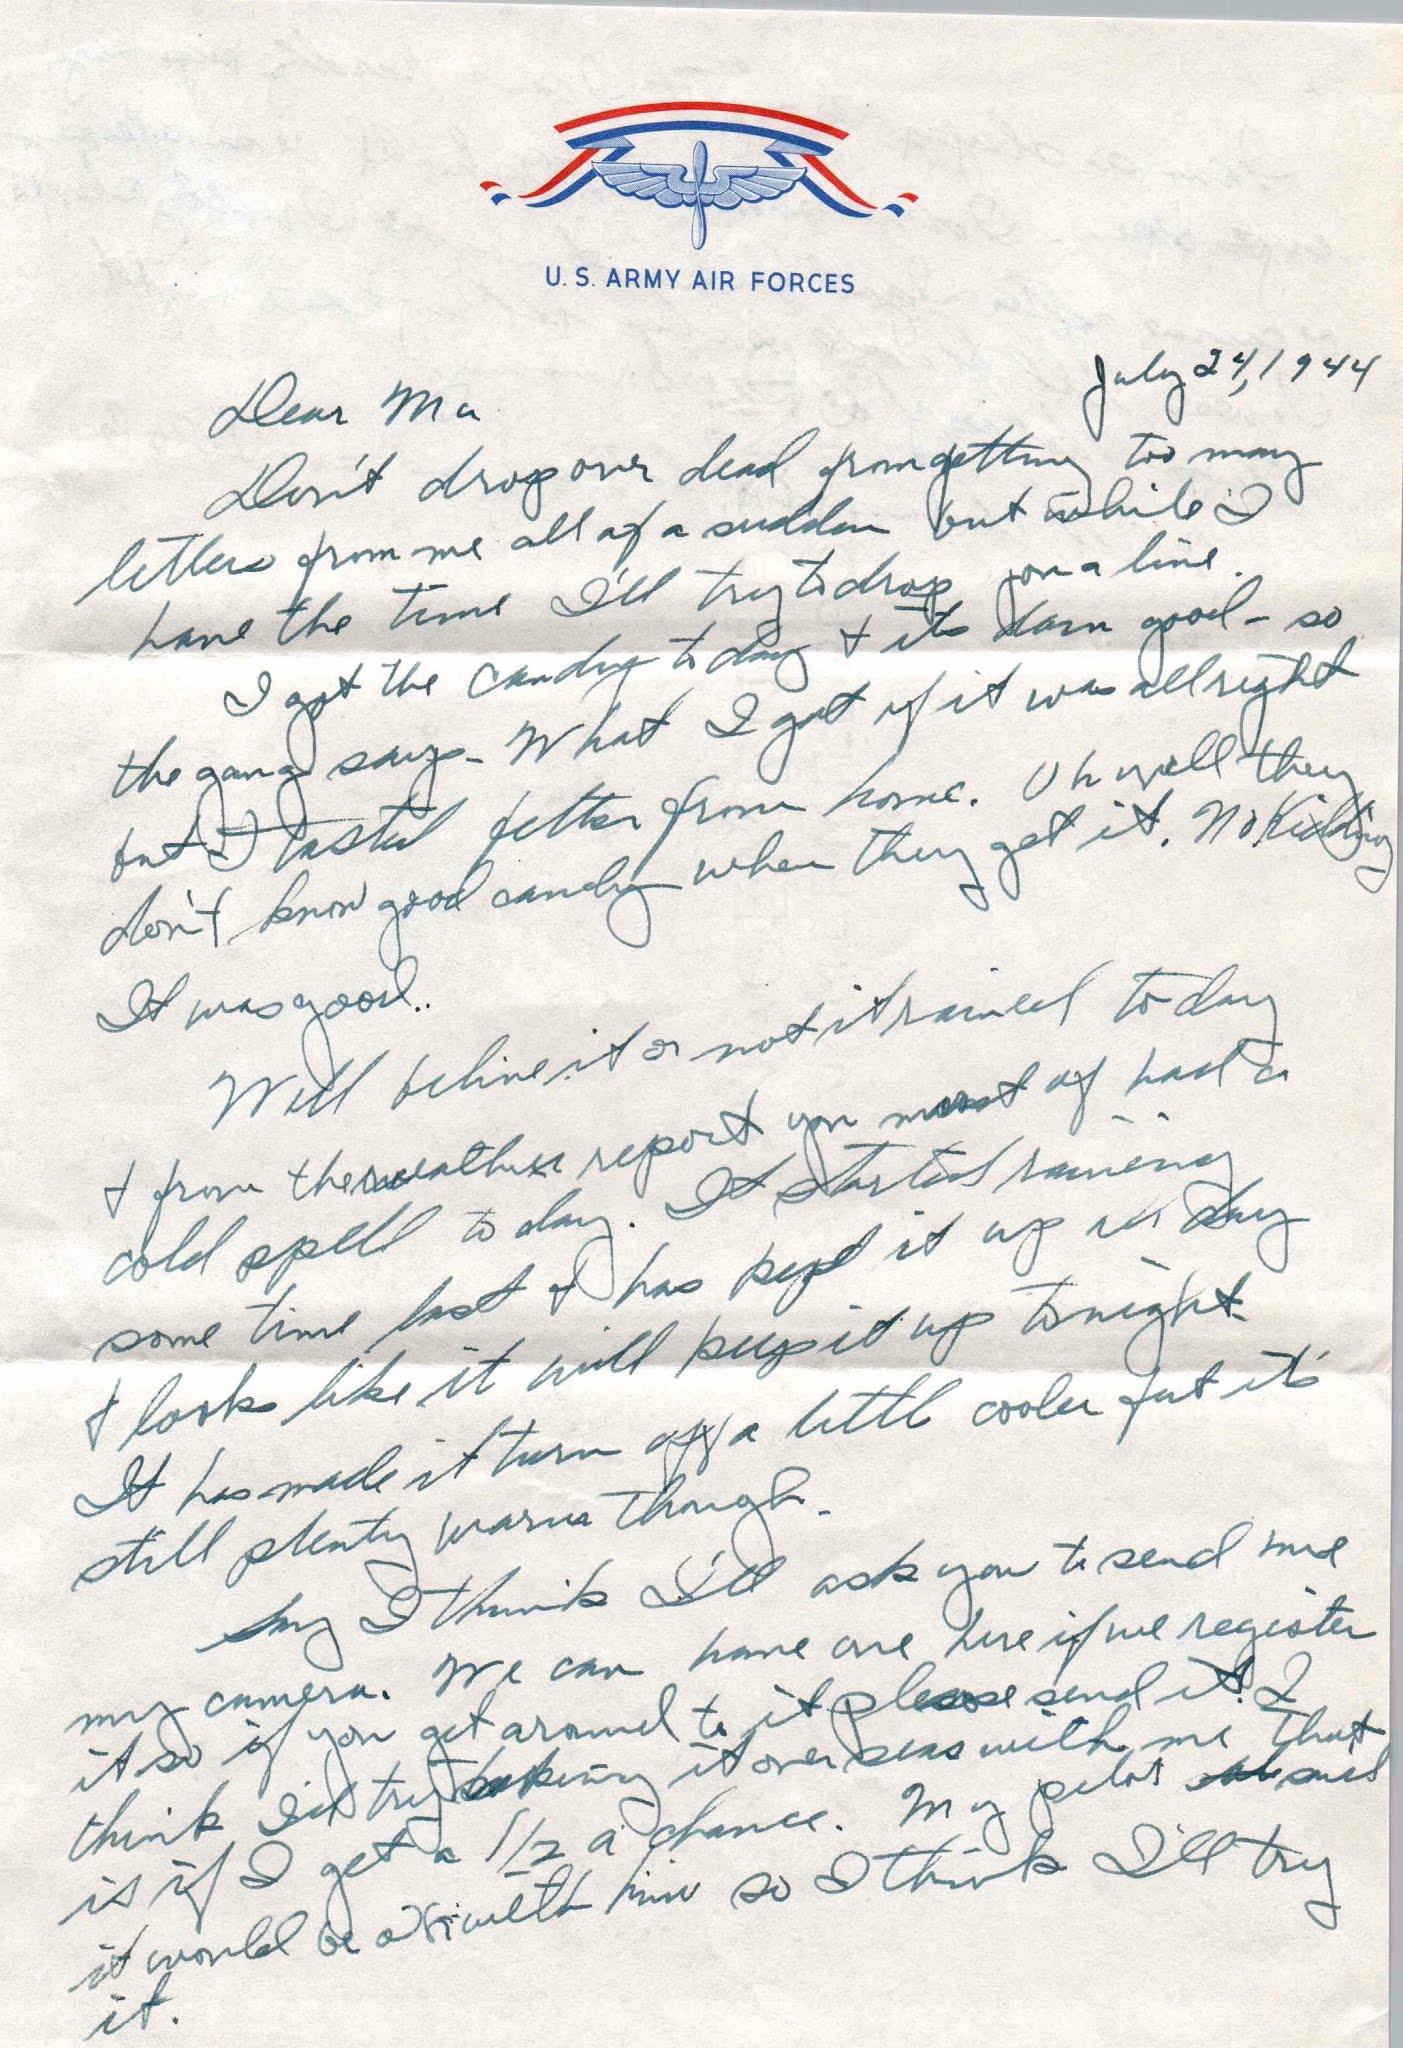 U. S. ARMY AIR FORCES
July 24, 1944
Dear Ma
Don't drop over dead from getting too many
letters from me all of a sudden but while I
have the time I'll try to drop you a line.
I got the candy today & its darn good - so
the gang says. What I got of it was allright
but I tasted better from home. Oh well they
don't know good candy when they get it. No Kidding
It was good..
Well believe it or not it rained today
& from the weather report you most of had a
cold spell today. It started raining
some time last & has kept it up all day
& looks like it will keep it up tonight.
It has made it turn off a little cooler but it's
still plenty warm though.
Say I think I'll ask you to send me
my camera. We can have one here if we register
it so if you get around to it please send it. I
think I'll try taking it overseas with me that
is if I get a 1/2 a chance. My pilot said
it would be with him so I think I'll try
it.